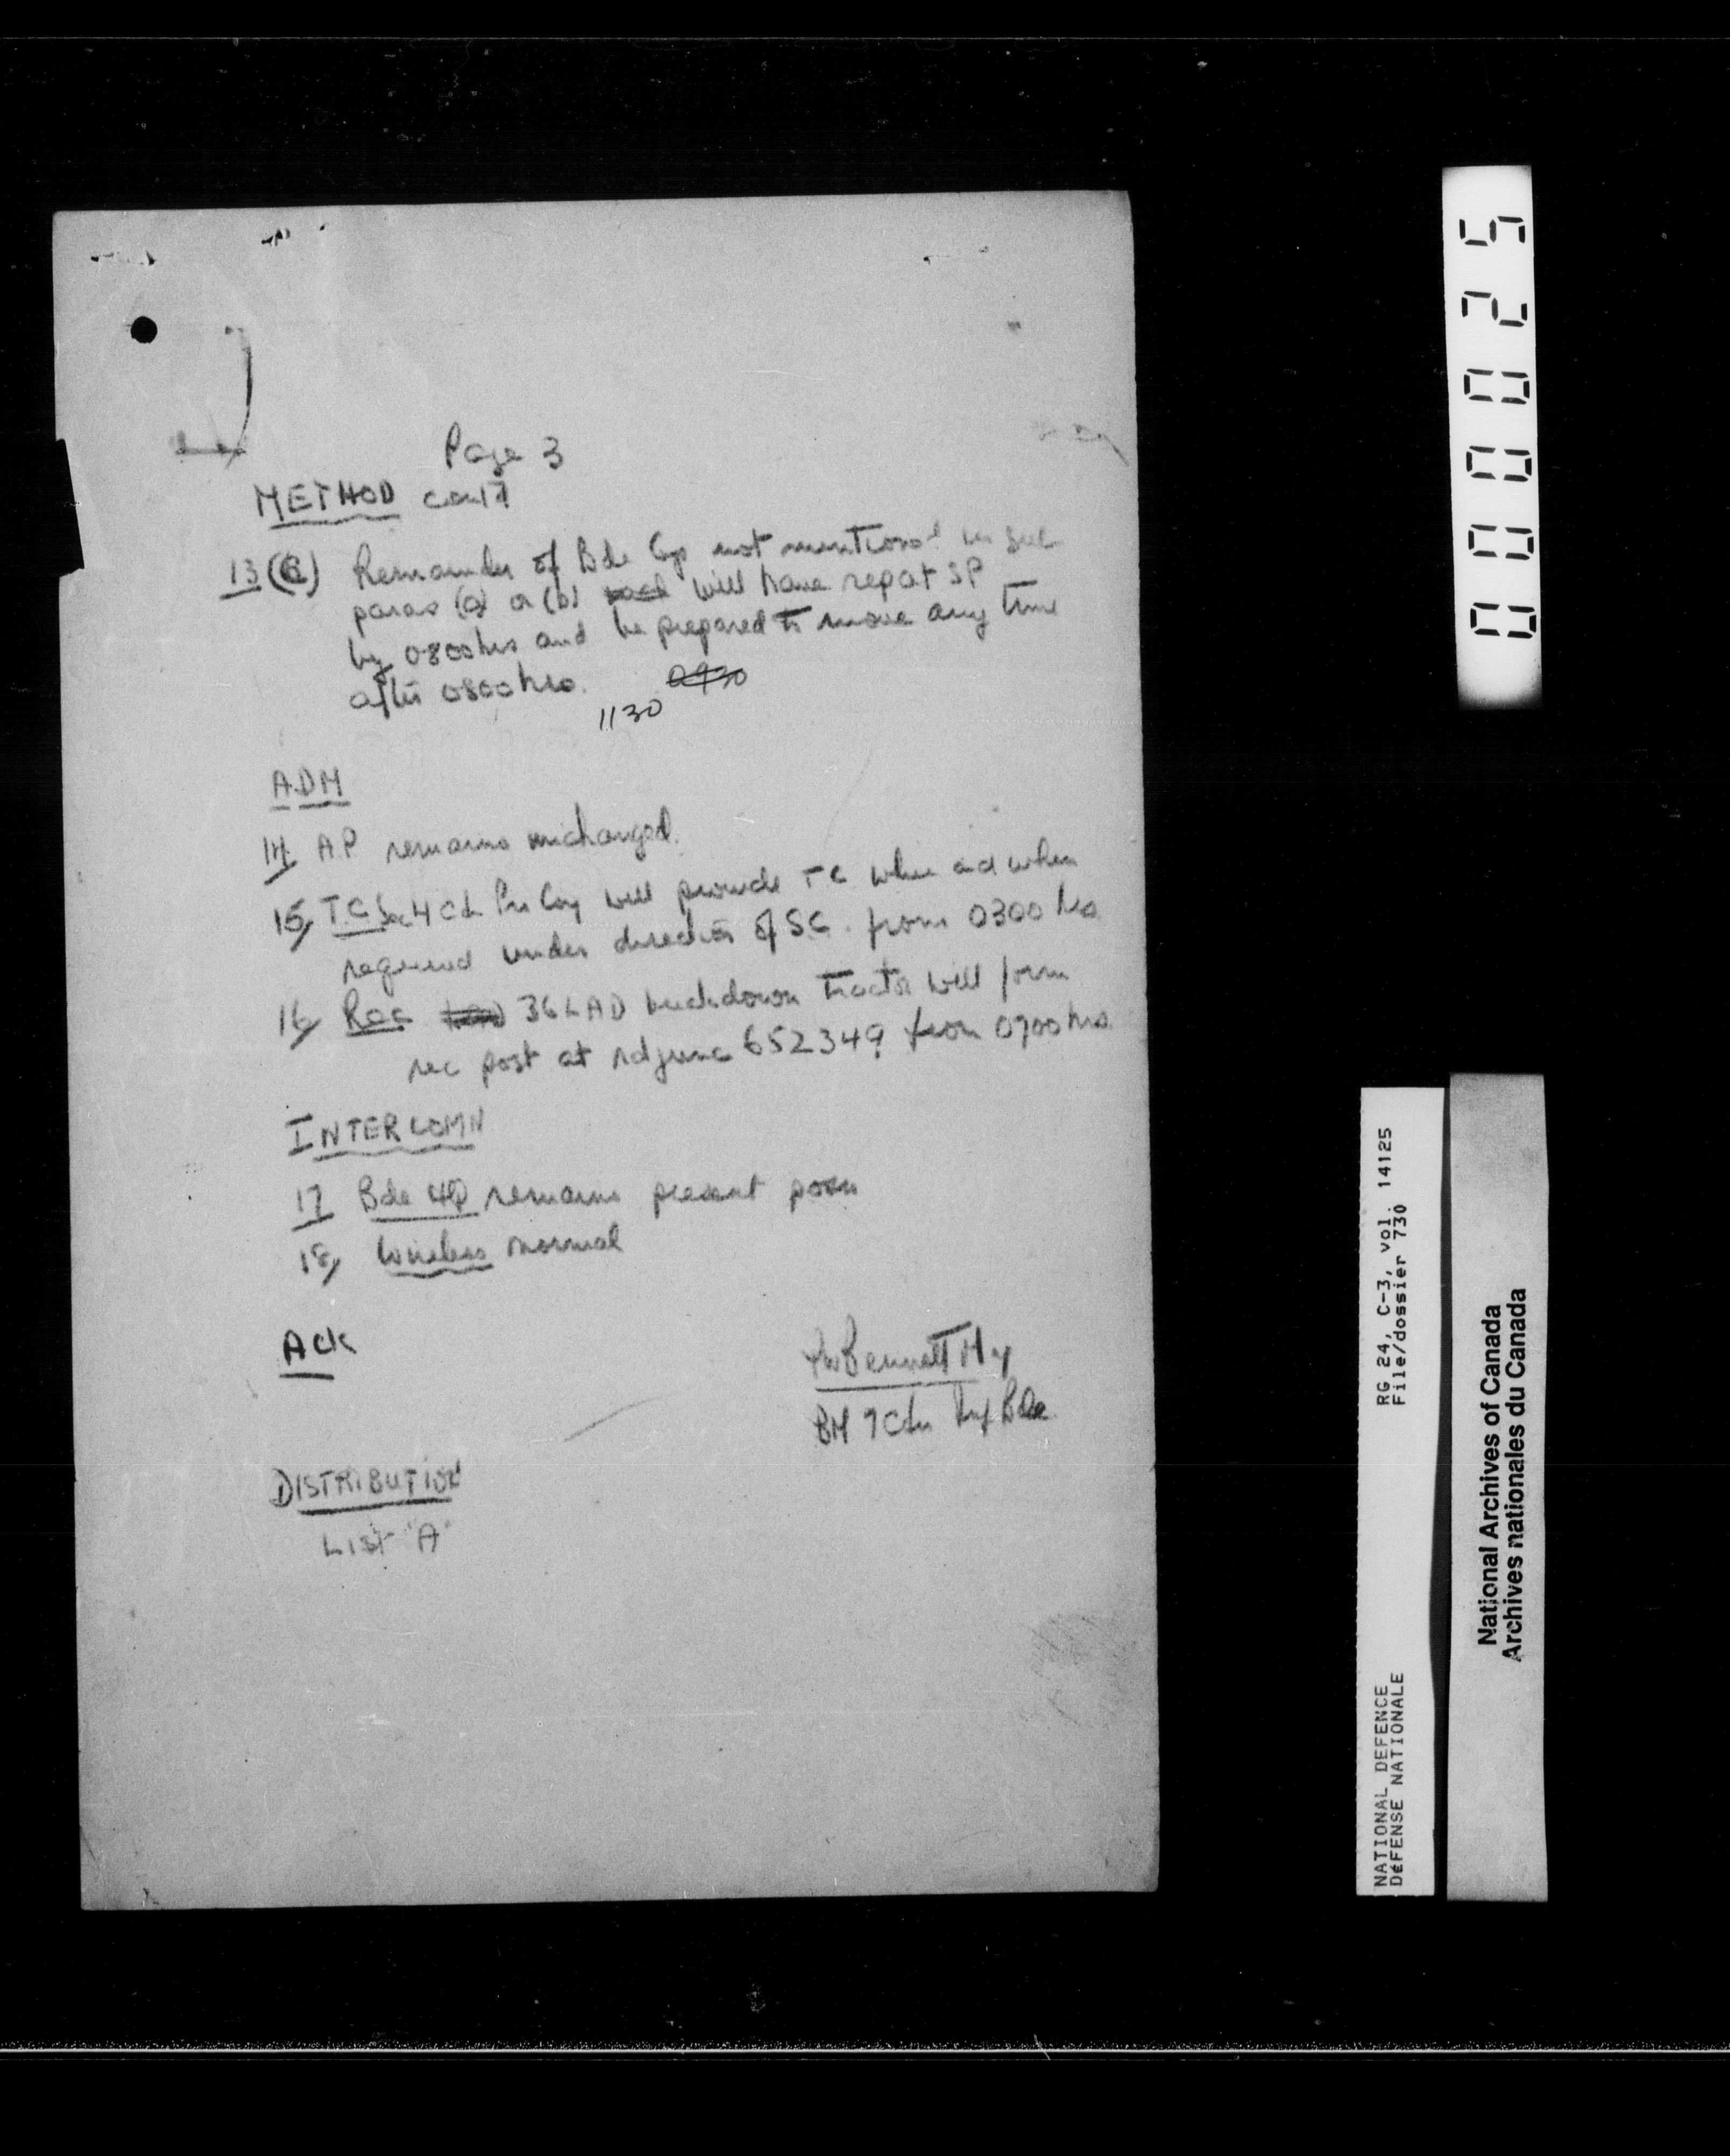 Page 3
METHOD cont'd
13 (c) Remainder of Bde Gp not mentioned in sub
paras (a) or (b) will have rep at SP
by 0800 hrs and be prepared to move any time
after 0800 hrs. 0930
1130
ADM
14/ A.P remains unchanged.
15/ T.C Sec 4 Cdn Pro Coy will provide TC when and when
required under direction of SC. from 0300 hrs
16/ Rec 36 LAD breakdown tractor will form
rec post at rd junc 652349 from 0700 hrs.
INTERCOMN
17 Bde HQ remains present posn
18/ Wireless normal
Ack
Bennett Maj
BM 7 Cdn Inf Bde
DISTRIBUTION
LIST "A"
000025
RG 24, C-3, vol. 14125
File/dossier 730
NATIONAL DEFENCE
DéFENSE NATIONALE
National Archives of Canada
Archives nationales du Canada